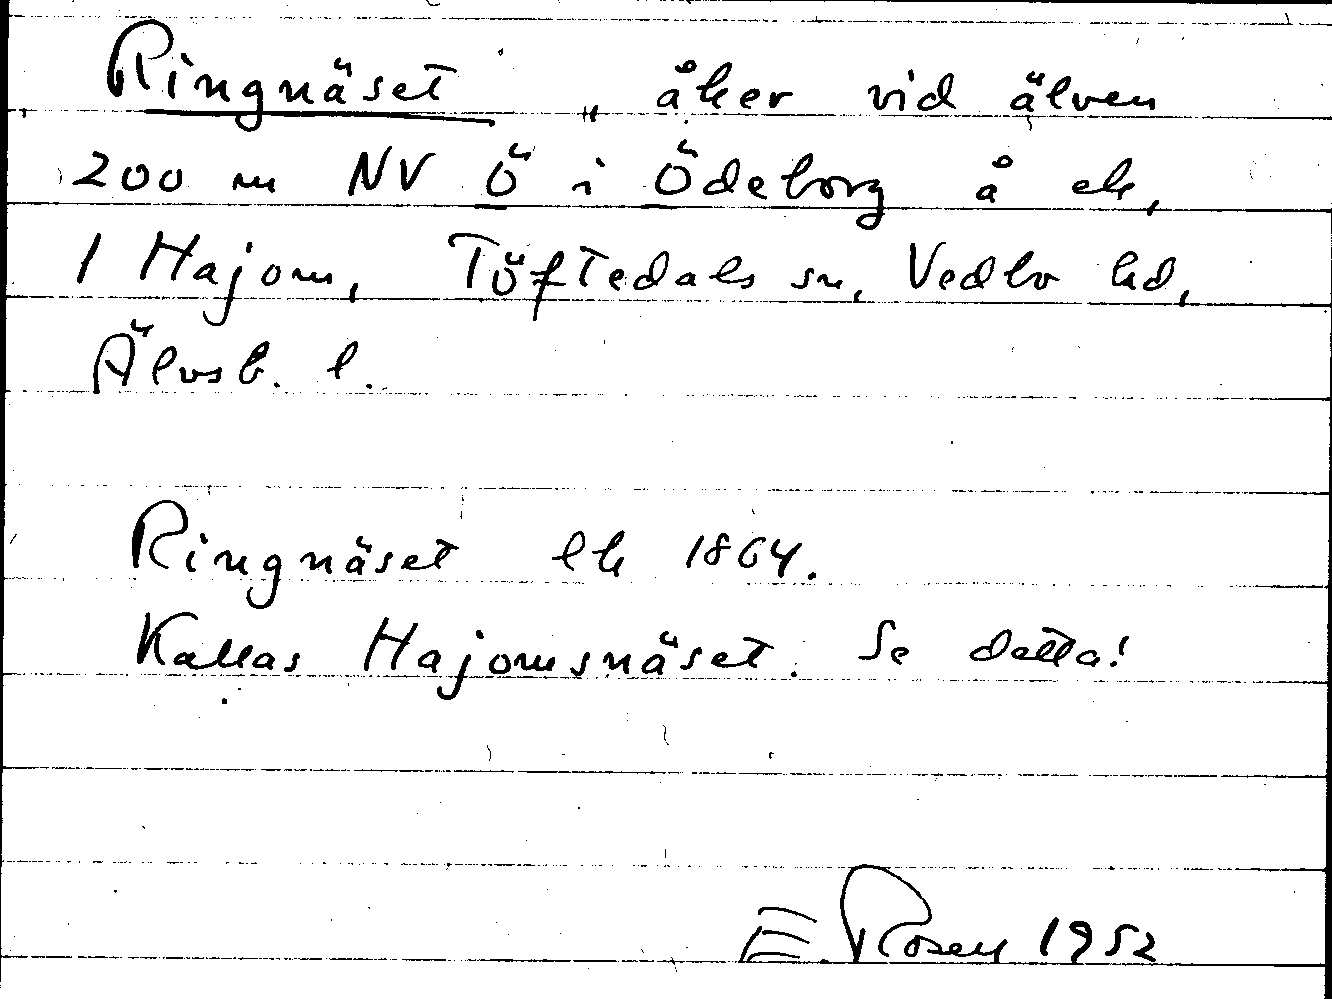 Ringnäset „ åker vid älven
200 m NV Ö i Ödeborg å ek,
1 Hajom, Töftedals sn, Vedbo hd,
Älvsb. l.
Ringnäset lk 1864.
Kallas Hajomsnäset. Se detta!
E. Rosell 1952